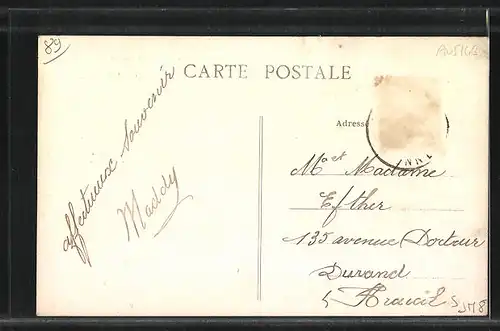 89
CARTE POSTALE
Adresse
affectueux souvenir
Maddy
Mr et Madame
Esther
135 avenue Docteur
Durand